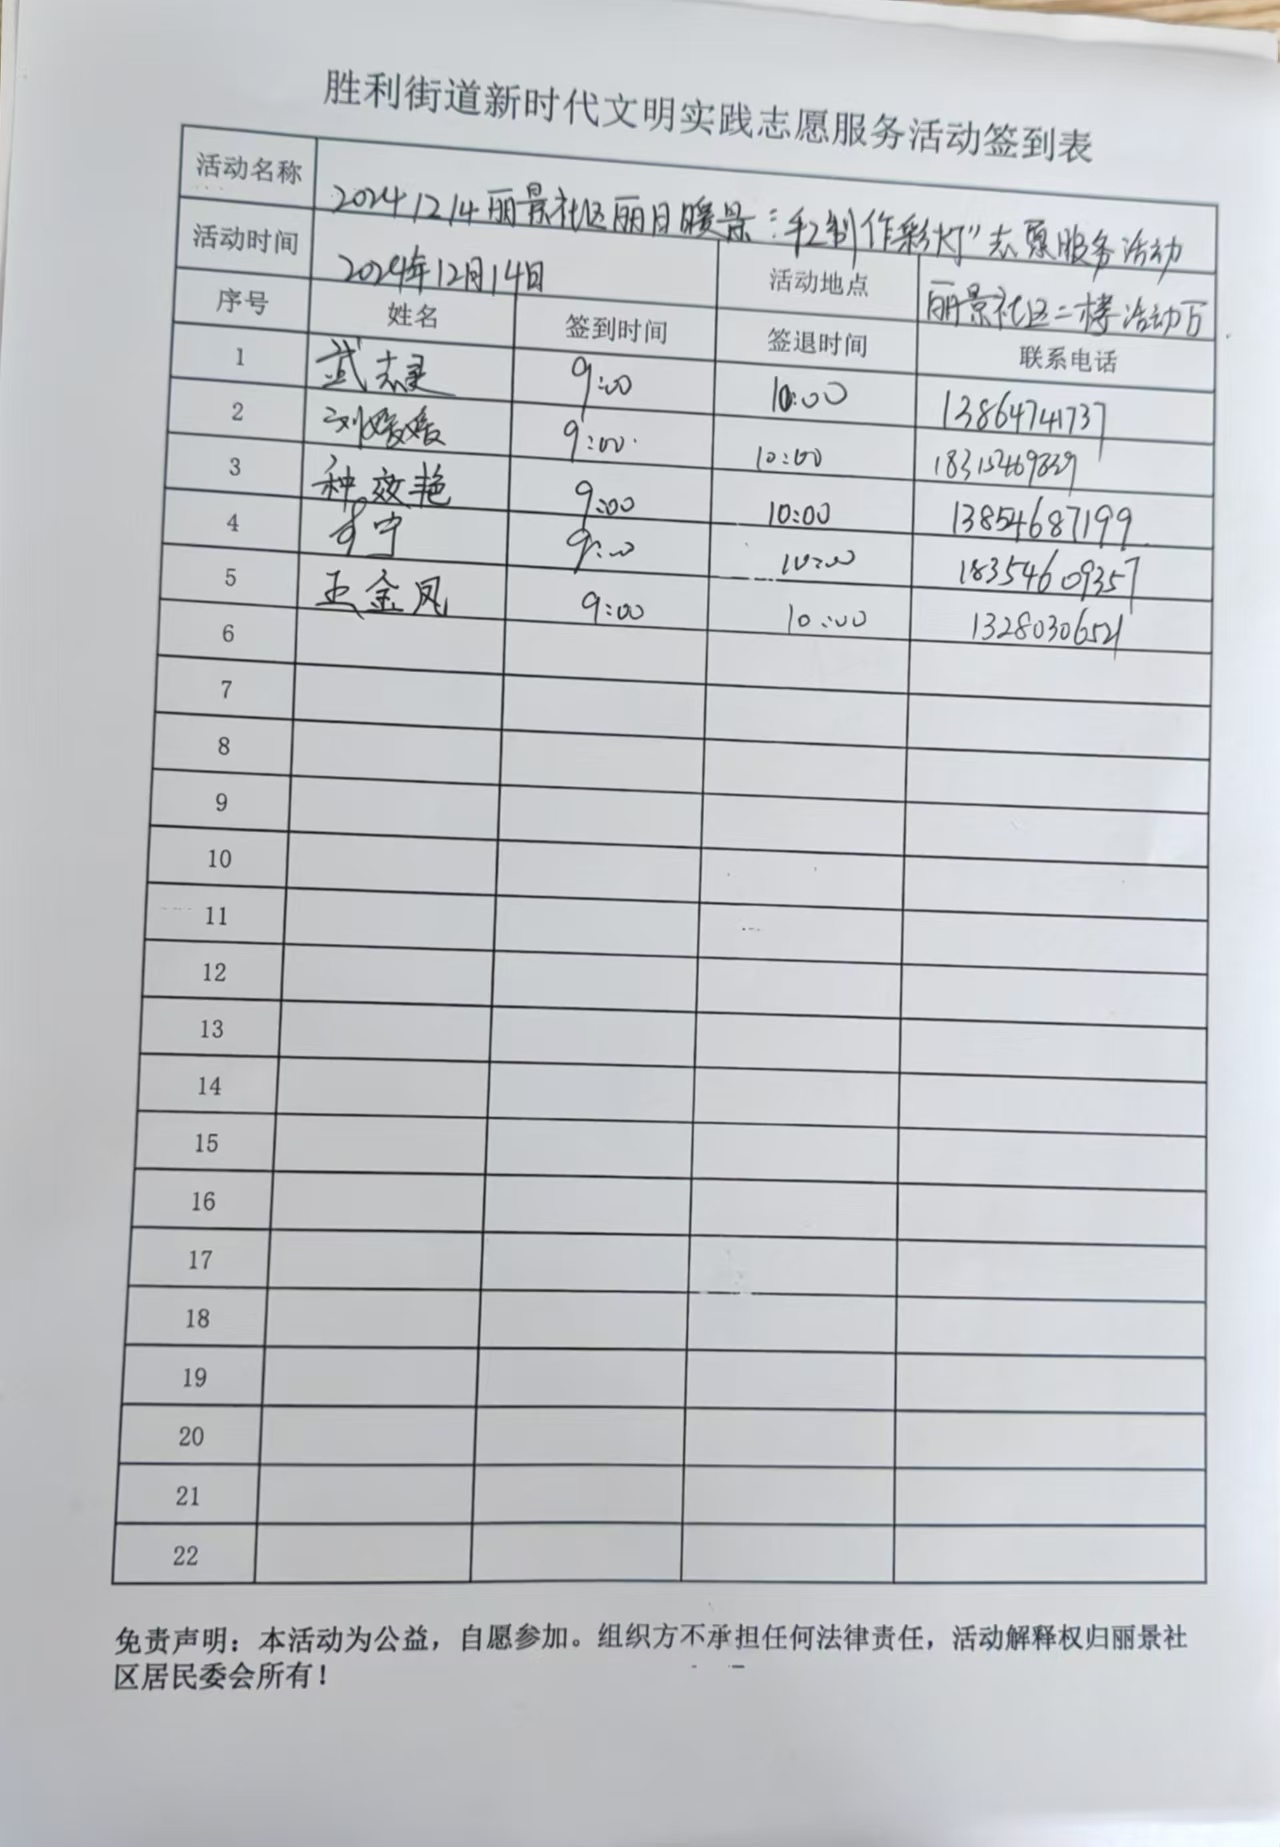 胜利街道新时代文明实践志愿服务活动签到表
活动名称 20241214丽景社区丽日暖景"手工制作彩灯"志愿服务活动
活动时间 2024年12月14日 活动地点 丽景社区二楼活动万
序号 姓名 签到时间 签退时间 联系电话
1 武志 9:00 10:00 13864741737
2 刘媛媛 9:00 10:00
3 种效艳 9:00 10:00 13854687199
4 宁 9:00 10:00 18354609357
5 王金凤 9:00 10:00 13280306521
6
7
8
9
10
11
12
13
14
15
16
17
18
19
20
21
22
免责声明：本活动为公益，自愿参加。组织方不承担任何法律责任，活动解释权归丽景社
区居民委会所有！